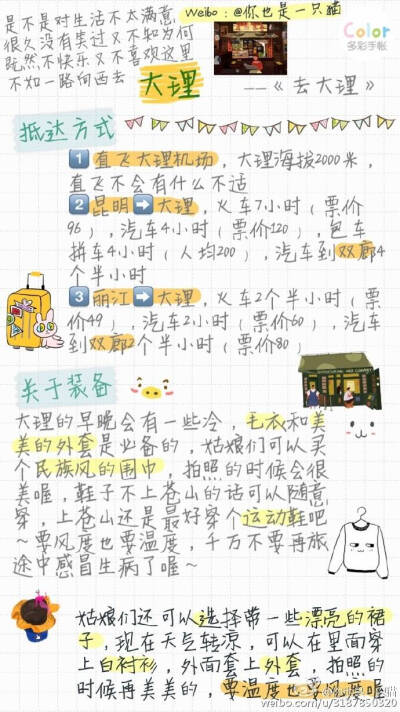 Weibo：@你也是一只猫
是不是对生活不太满意
很久没有笑过又不知为何
既然不快乐又不喜欢这里
不如一路向西去 大理 ——《去大理》
Color
多彩手帐
抵达方式
1 直飞大理机场，大理海拔2000米，
直飞不会有什么不适
2 昆明➡大理，火车7小时（票价
96），汽车4小时（票价120），包车
拼车4小时（人均200），汽车到双廊4
个半小时
3 丽江➡大理，火车2个半小时（票
价49），汽车2小时（票价60），汽车
到双廊2个半小时（票价80）
关于装备
大理的早晚会有一些冷，毛衣和美
美的外套是必备的，姑娘们可以买
个民族风的围巾，拍照的时候会很
美喔，鞋子不上苍山的话可以随意
穿，上苍山还是最好穿个运动鞋吧
~要风度也要温度，千万不要再旅
途中感冒生病了喔~
姑娘们还可以选择带一些漂亮的裙
子，现在天气转凉，可以在里面穿
上白衬衫，外面套上外套，拍照的
时候再美美的，要温度也要风度
weibo.com/u/3187890320